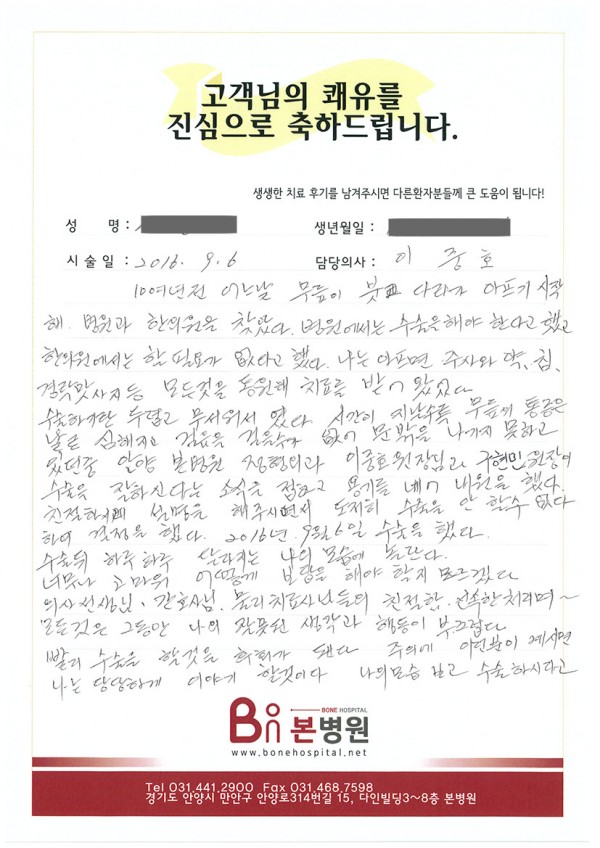 고객님의 쾌유를
진심으로 축하드립니다.
생생한 치료 후기를 남겨주시면 다른환자분들께 큰 도움이 됩니다!
성 명 :
생년월일 :
시 술 일 : 2016. 9. 6
담당의사 : 이 중 호
10여년전 어느날 무릎이 붓고 다리가 아프기 시작
해. 병원과 한의원을 찾았다. 병원에서는 수술을해야 한다고 했고
한의원에서는 할 필요가 없다고 했다. 나는 아프면 주사와 약, 침,
경락맛사지등 모든것을 동원해 치료를 받어 왔었다
수술하기란 두렵고 무서워서 였다. 시간이 지날수록 무릎의 통증은
날로 심해지고 걸음을 걸을수가 없어 문밖을 나가지 못하고
있던중 안양 본병원 정형외과 이중호원장님과 구현민원장이
수술을 잘하신다는 소식을 접하고 용기를 내어 내원을 했다.
친절하게 설명을 해주시면서 도저히 수술을 안 할수 없다
하여 결정을 했다. 2016년. 9월6일 수술을 했다.
수술뒤 하루 하루 달라지는 나의 모습에 놀란다.
너무나 고마워 어떻게 보답을 해야 할지 모르겠다
의사선생님, 간호사님. 물리치료사님들의 친절함, 신속한처리며~
모든것은 그동안 나의 잘못된 생각과 행동이 부끄럽다
빨리 수술을 할것을 후회가 된다 주의에 이런분이 계시면
나는 당당하게 이야기 할것이다 나의모습 보고 수술하시라고
BONE HOSPITAL
Bon 본병원
www.bonehospital.net
Tel 031.441.2900 Fax 031.468.7598
경기도 안양시 만안구 안양로314번길 15, 다인빌딩3~8층 본병원